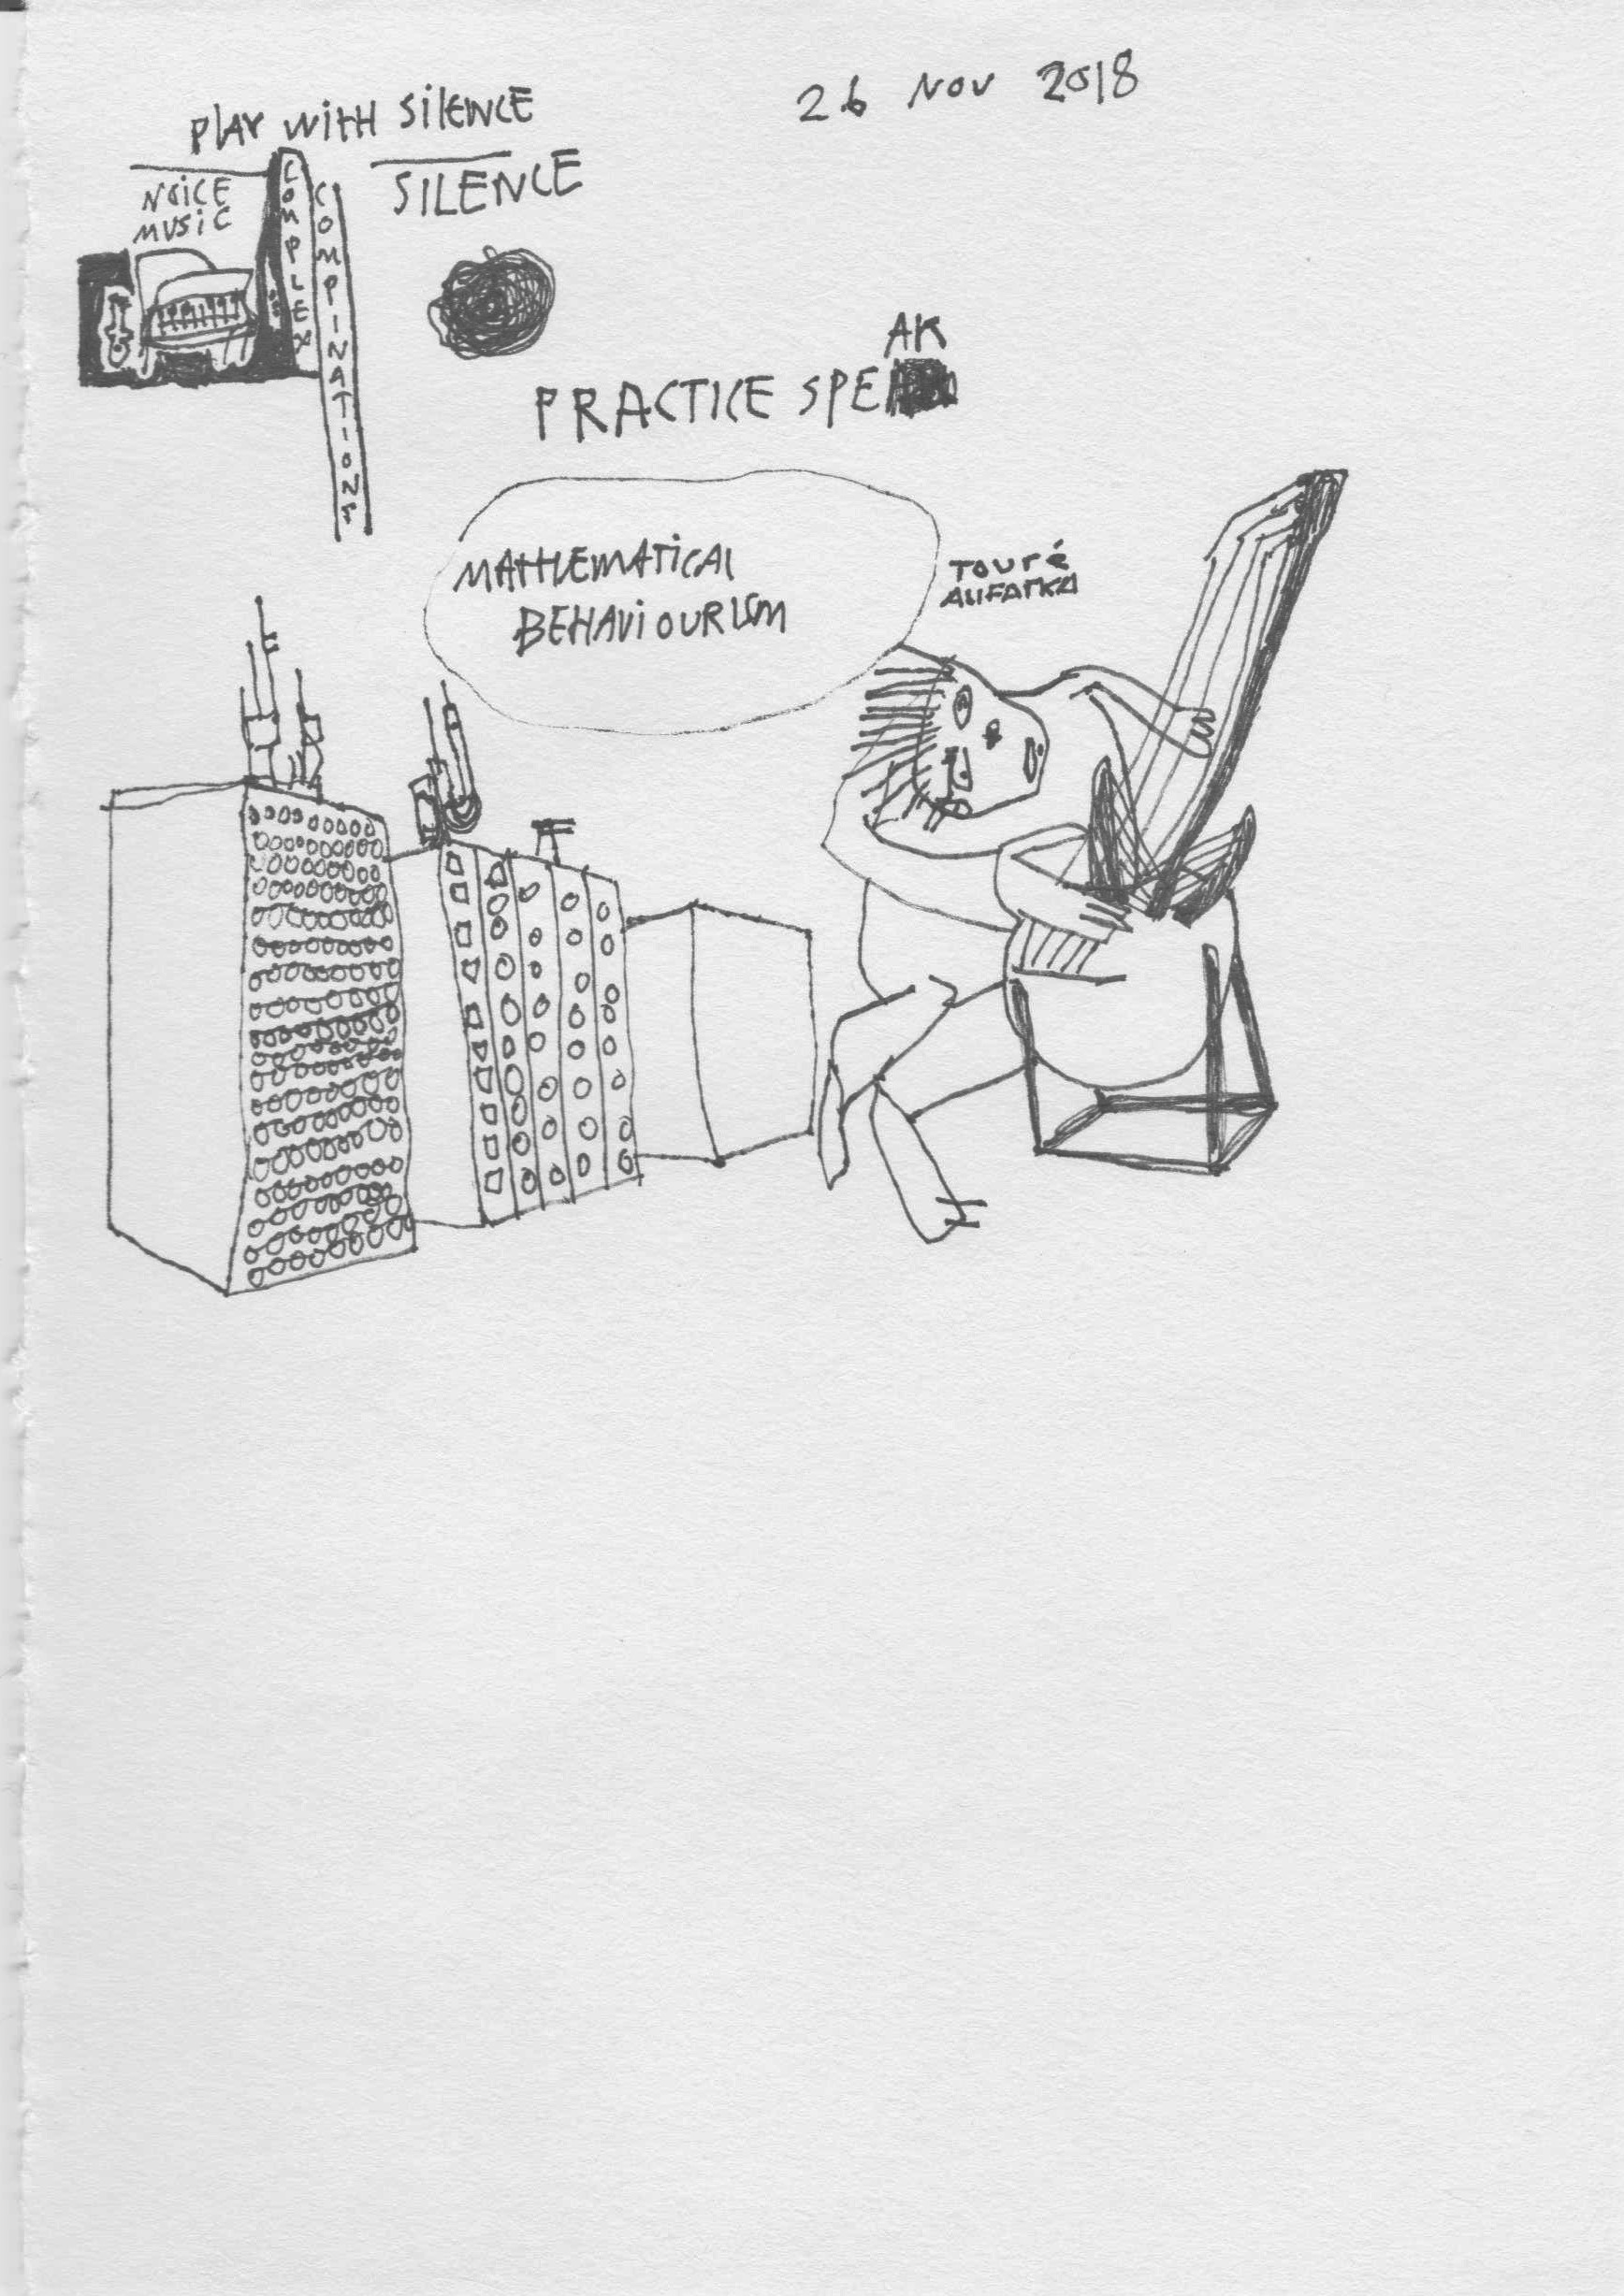 26 NOV 2018
PLAY WITH SILENCE
NOICE
MUSIC
COMPLEX
COMPINATIONS
SILENCE
AK
PRACTICE SPEA
MATHEMATICAL
BEHAVIOURISM
TOURÉ
ALIFARKA